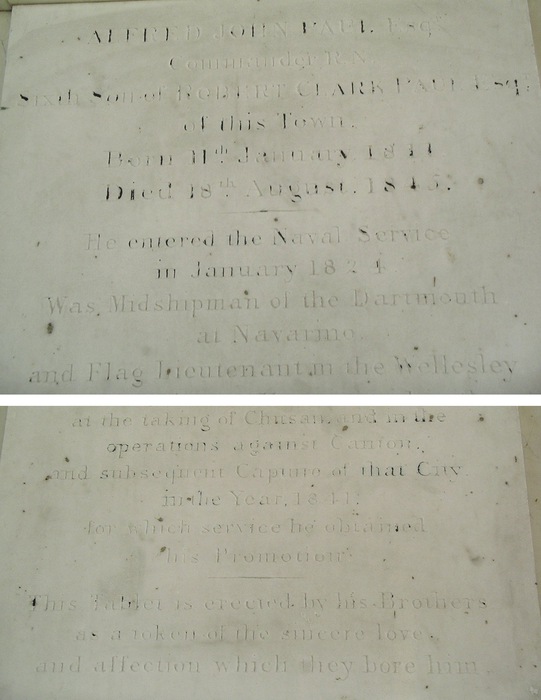 ALFRED JOHN PAUL Esqr
Commander R.N.
Sixth Son of ROBERT CLARK PAUL Esqr
of this Town.
Born 11th January 1811
Died 18th August, 1845.
He entered the Naval Service
in January 1824
Was Midshipman of the Dartmouth
at Navarino,
and Flag Lieutenant in the Wellesley
at the taking of Chusan, and in the
operations against Canton,
and subsequent Capture of that City
in the Year, 1841;
for which service he obtained
his Promotion.
This Tablet is erected by his Brothers
as a token of the sincere love,
and affection which they bore him.